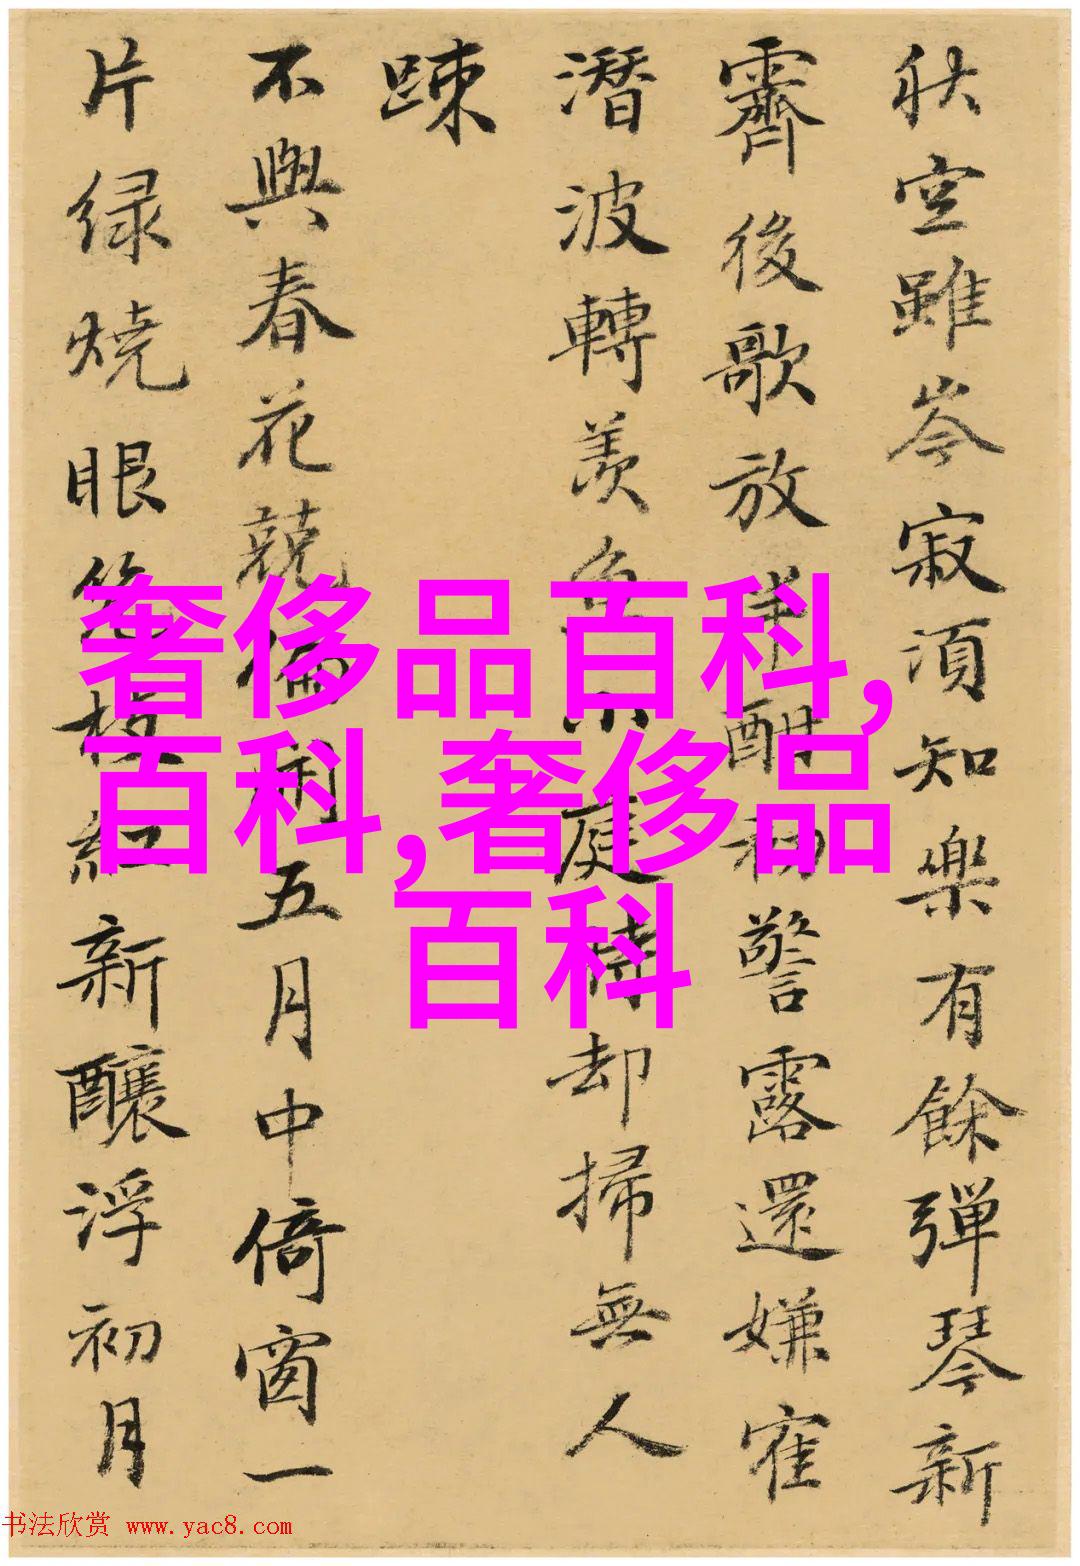 秋空雖岑寂須知樂有餘彈琴新
霽後歌放半酣初警露還嫌寉
潛波轉羨魚小庭待却掃無人
踈
不與春花競偏開五月中倚窗一
片緑燒眼幾枝紅新釀浮初月
奢侈品百科,
百科,奢侈品
百科
书法欣赏 www.yac8.com